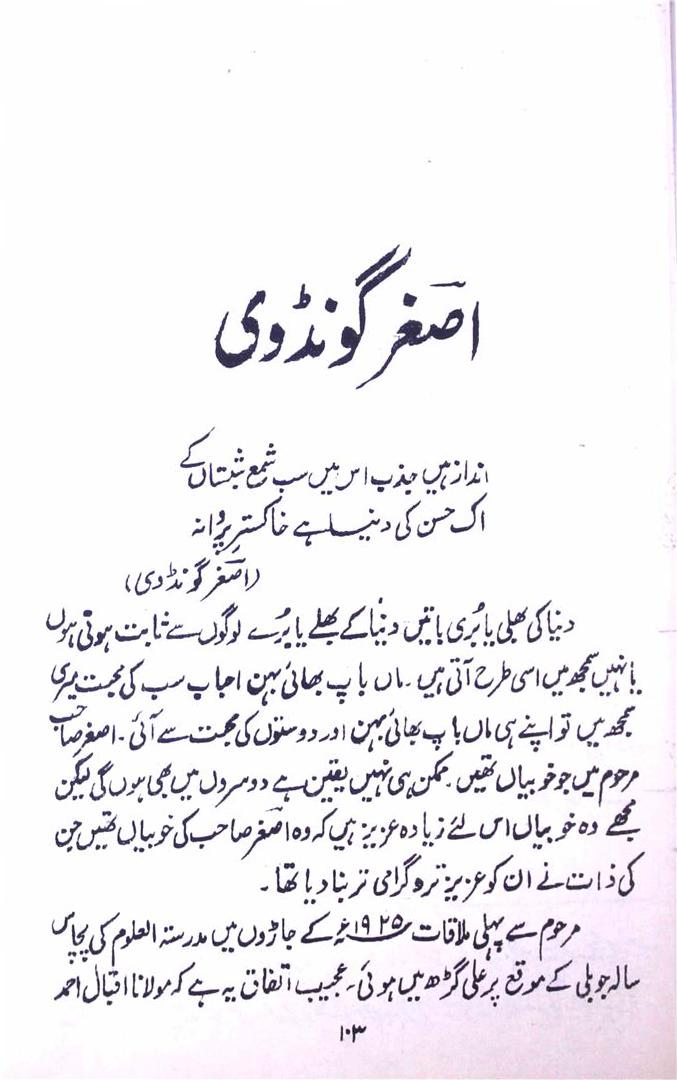 اصغر گونڈوی
انداز ہیں جذب اس میں سب شمع شبستاں کے
اک حسن کی دنیا ہے خاکسترِ پروانہ
(اصغر گونڈوی)
دنیا کی بھلی یا بُری باتیں دنیا کے بھلے یا بُرے لوگوں سے ثابت ہوتی ہوں
یا نہیں سمجھ میں اسی طرح آتی ہیں۔ ماں باپ بھائی بہن احباب سب کی محبت میری
سمجھ میں تو اپنے ہی ماں باپ بھائی بہن اور دوستوں کی محبت سے آئی۔ اصغر صاحب
مرحوم میں جو خوبیاں تھیں۔ ممکن ہی نہیں یقین ہے دوسروں میں بھی ہوں گی لیکن
مجھے وہ خوبیاں اس لئے زیادہ عزیز ہیں کہ وہ اصغر صاحب کی خوبیاں تھیں جن
کی ذات نے ان کو عزیز تر و گرامی تر بنا دیا تھا۔
مرحوم سے پہلی ملاقات ۱۹۲۵ء کے جاڑوں میں مدرستہ العلوم کی پچاس
سالہ جوبلی کے موقع پر علی گڑھ میں ہوئی۔ عجیب اتفاق یہ ہے کہ مولانا اقبال احمد
۱۰۳